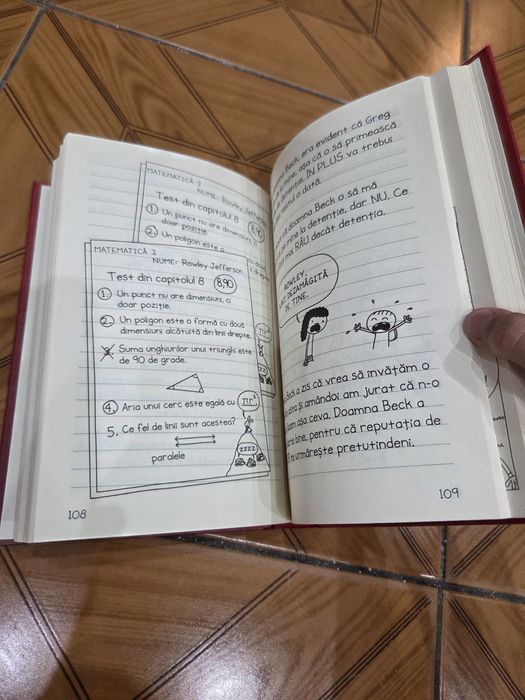 MATEMATICĂ 2
NUME: Rowley Jefferson
Test din capitolul 8
8,90
1. Un punct nu are dimensiuni, ci
doar poziție.
2. Un poligon este o
MATEMATICĂ 2
NUME: Rowley Jefferson
Test din capitolul 8
8,90
1. Un punct nu are dimensiuni, ci
doar poziție.
2. Un poligon este o formă cu două
dimensiuni alcătuită din linii drepte.
3. Suma unghiurilor unui triunghi este
de 90 de grade.
4. Aria unui cerc este egală cu
πr²
5. Ce fel de linii sunt acestea?
paralele
zzzz
108
Beck, era evident că Greg
mine, așa că o să primească
detenție. ÎN PLUS va trebui
testul o dată.
doamna Beck o să mă
pe mine la detenție, dar NU. Ce
mai RĂU decât detenția.
ROWLEY,
SUNT DEZAMĂGITĂ
DE TINE.
Beck a zis că vrea să învățăm o
și amândoi am jurat că n-o
așa ceva. Doamna Beck a
bine, pentru că reputația de
te urmărește pretutindeni.
109